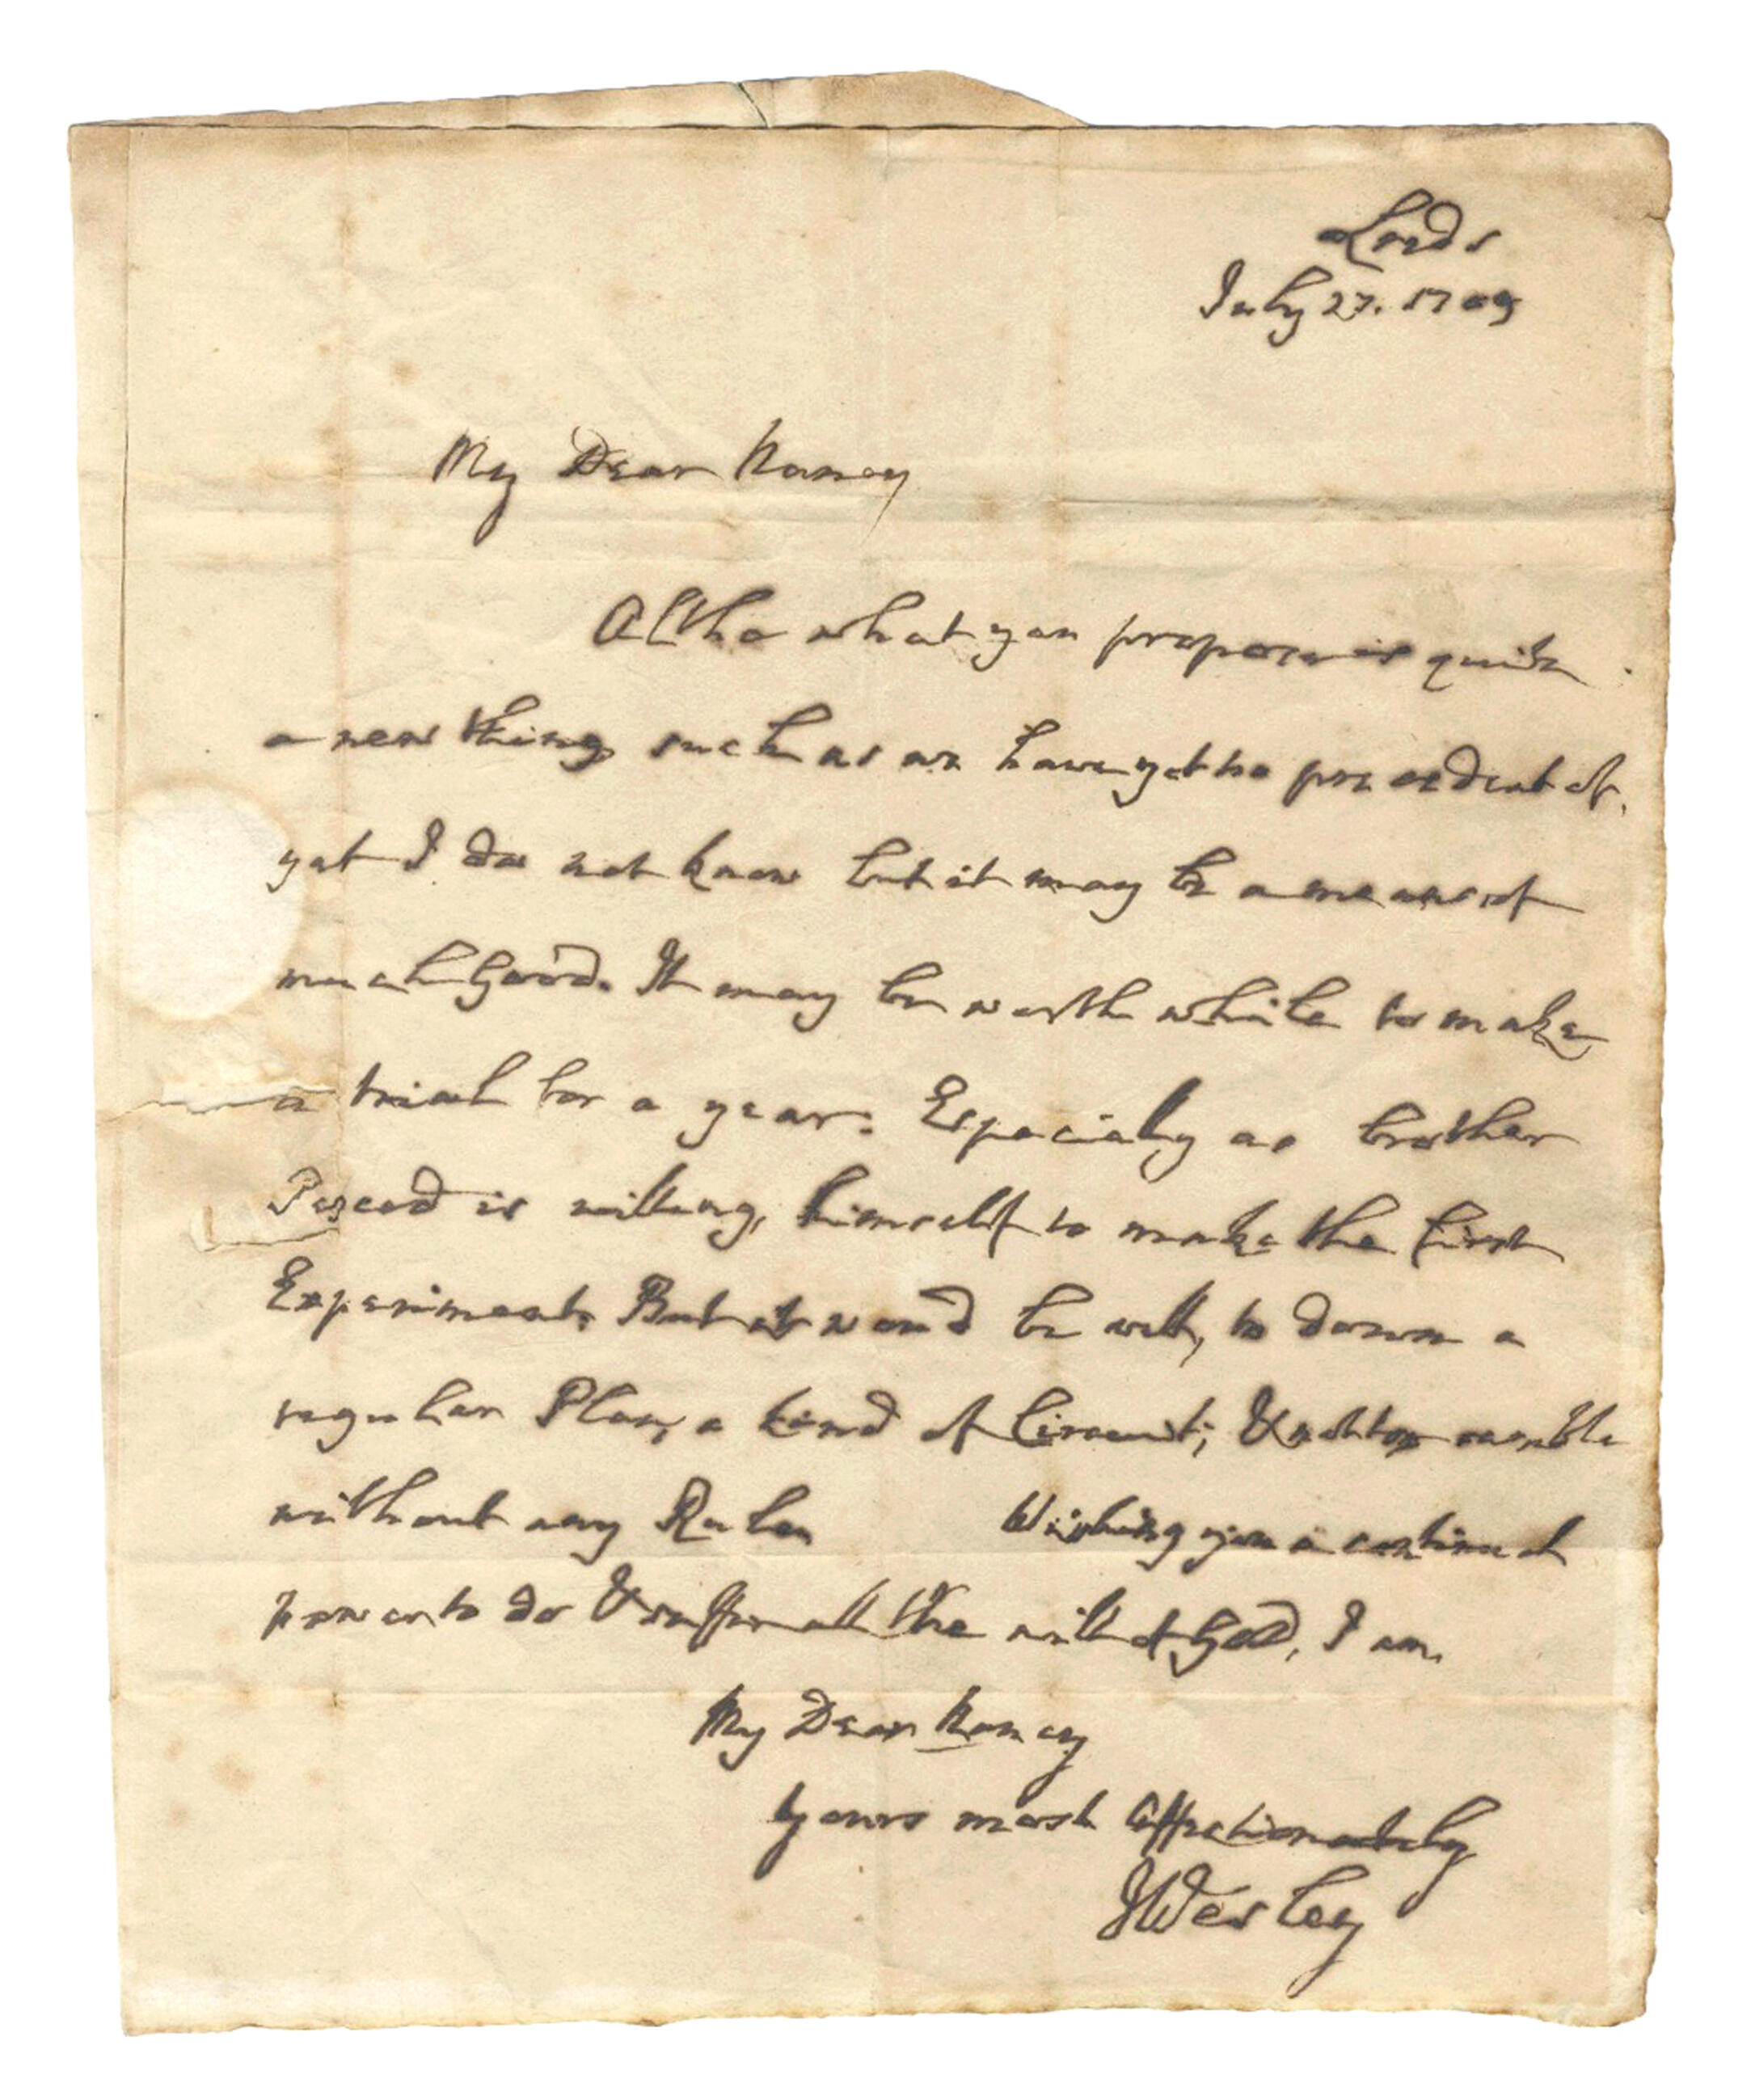 Leeds
July 27. 1789
My Dear Nancy
Altho what you propose is quite
a new thing, such as we have yet no precedent of,
yet I do not know but it may be a means of
much Good. It may be worth while to make
a trial for a year. Especially as brother
is willing, himself to make the first
Experiment. But it woud be well, to down a
regular Plan, a kind of Circuit; & not to ramble
without any Rule. Wishing you a continual
power to do & suffer all the will of God, I am,
My Dear Nancy
Yours most Affectionately
JWesley